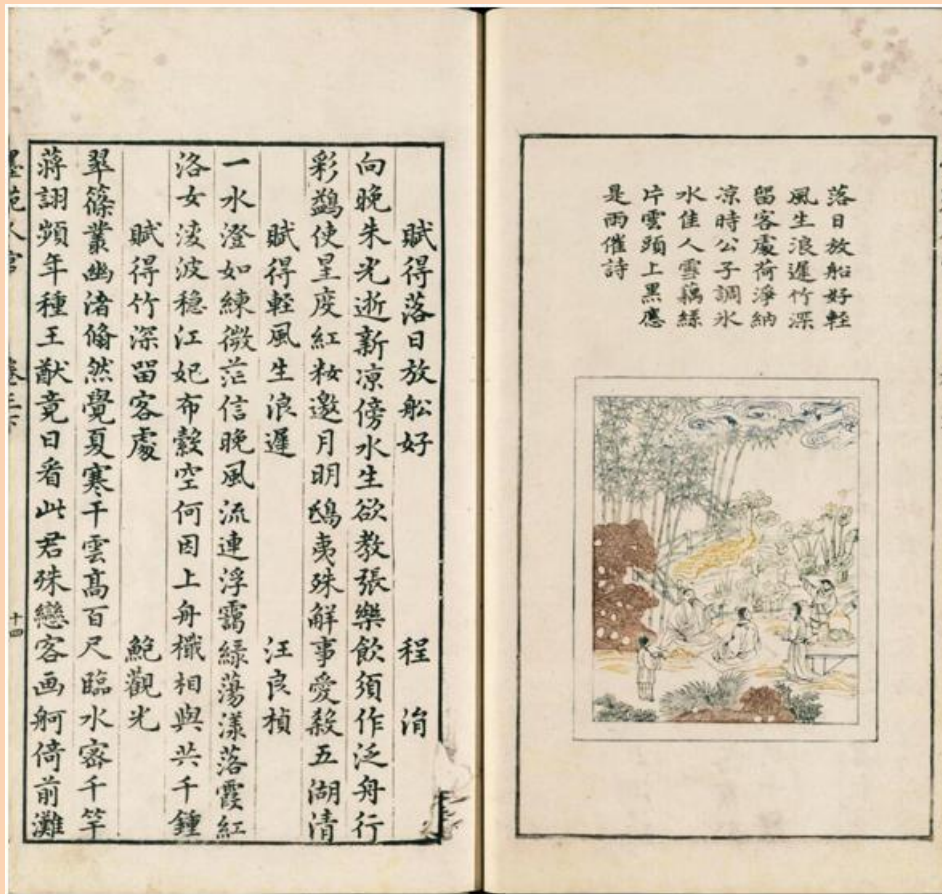 落日放船好輕
風生浪遲竹深
留客處荷淨納
凉時公子調氷
水佳人雪藕絲
片雲頭上黒應
是雨催詩
賦得落日放舩好 程涓
向晚朱光逝新凉傍水生欲教張樂飲須作泛舟行
彩鷁使星度紅粧邀月明鴟夷殊解事愛殺五湖清
賦得輕風生浪遲 汪良楨
一水澄如練微茫信晚風流連浮靄緑蕩漾落霞紅
洛女淩波穏江妃布縠空何因上舟檝相與共千鍾
賦得竹深留客處 鮑觀光
翠篠叢幽渚翛然覺夏寒干雲髙百尺臨水密千竿
蔣詡頻年種王猷竟日看此君殊戀客画舸倚前灘
十四